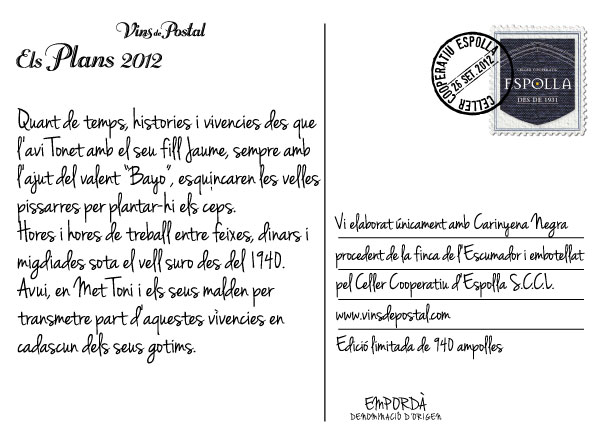 Vins de Postal
Els Plans 2012
Quant de temps, histories i vivencies des que
l'avi Tonet amb el seu fill Jaume, sempre amb
l'ajut del valent "Bayo", esquinçaren les velles
pissarres per plantar-hi els ceps.
Hores i hores de treball entre feixes, dinars i
migdiades sota el vell suro des del 1940.
Avui, en Met Toni i els seus malden per
transmetre part d'aquestes vivencies en
cadascun dels seus gotims.
CELLER COOPERATIU ESPOLLA
26 SET. 2012
CELLER COOPERATIU
ESPOLLA
DES DE 1931
Vi elaborat únicament amb Carinyena Negra
procedent de la finca de l'Escumador i embotellat
pel Celler Cooperatiu d'Espolla S.C.C.L.
www.vinsdepostal.com
Edició limitada de 940 ampolles
EMPORDÀ
DENOMINACIÓ D'ORIGEN